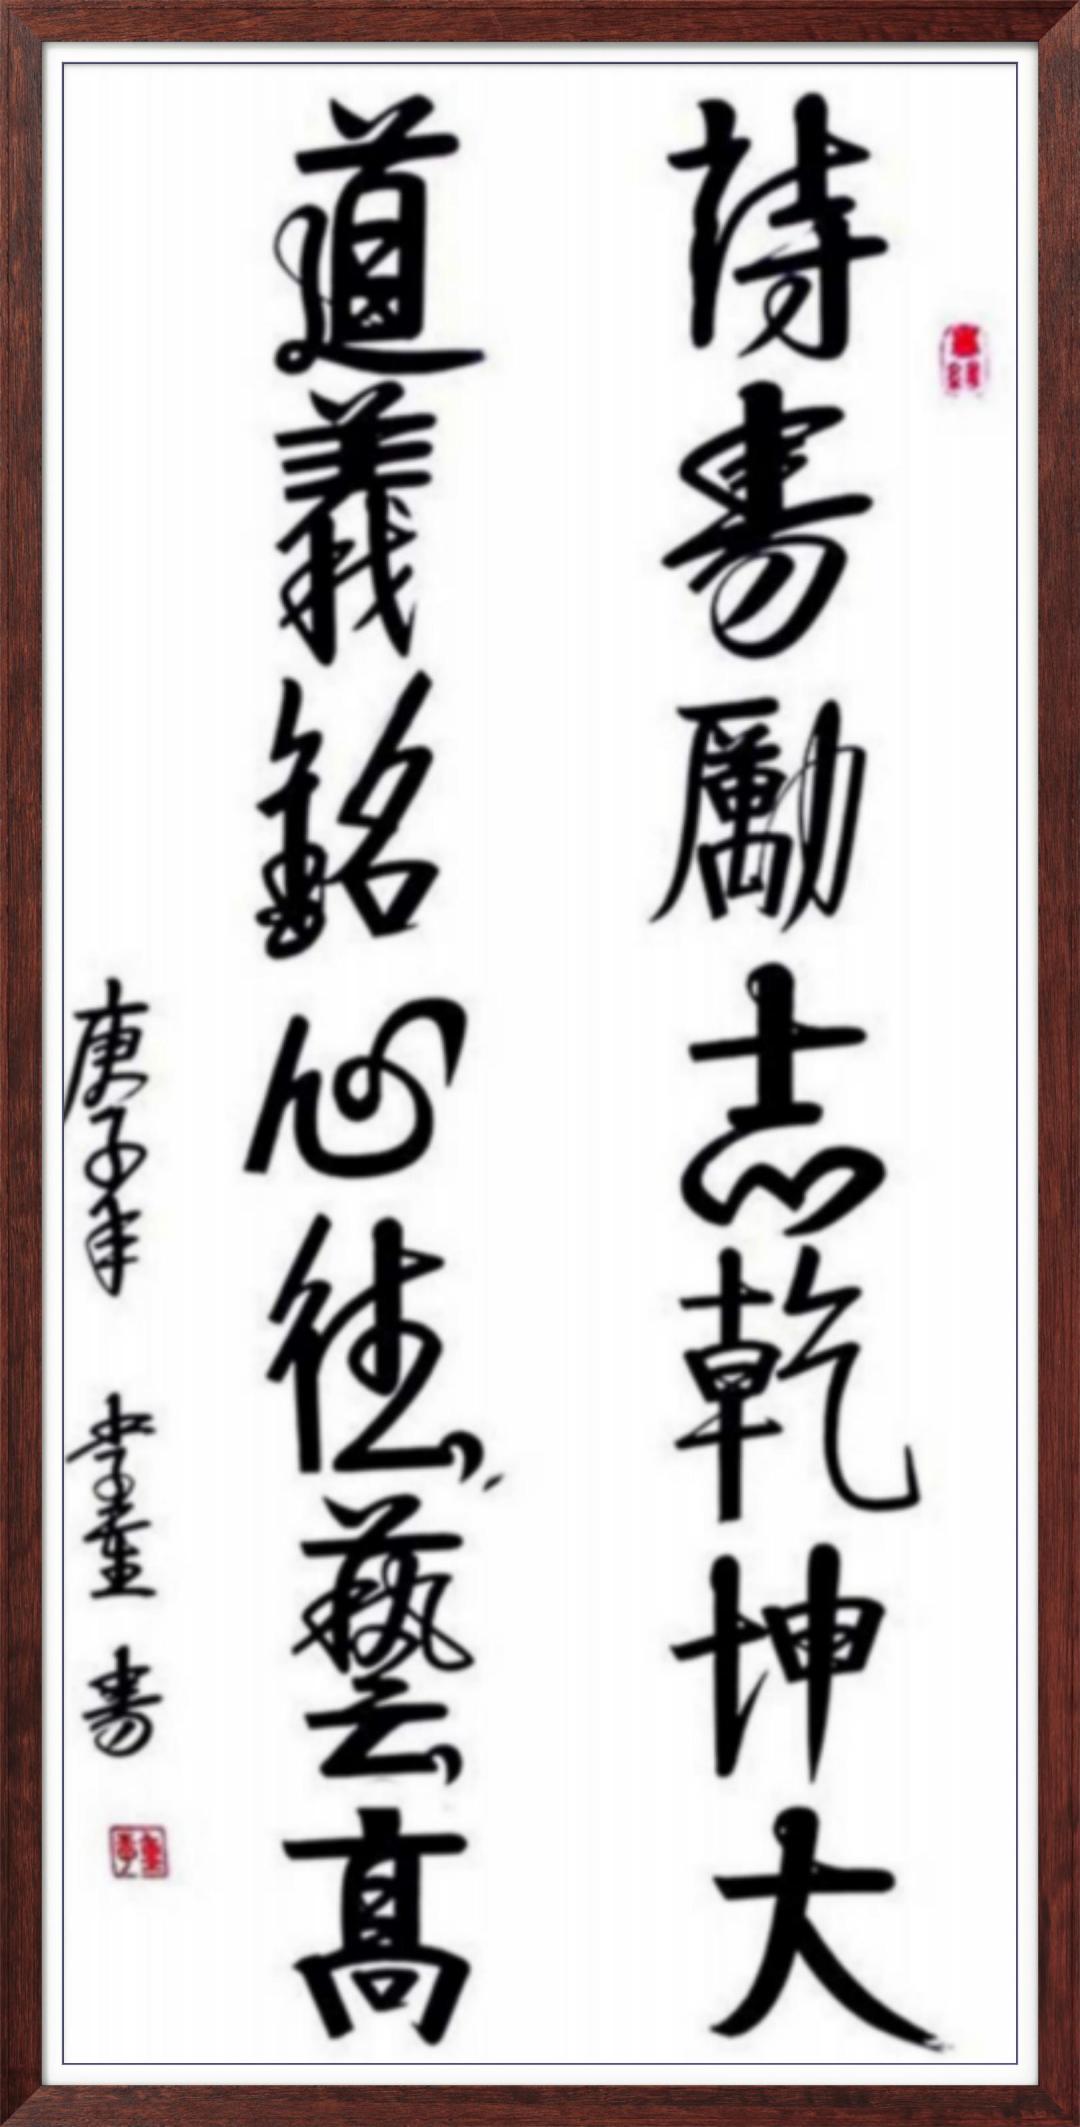 詩書勵志乾坤大
道義銘心德藝高
庚子年 書